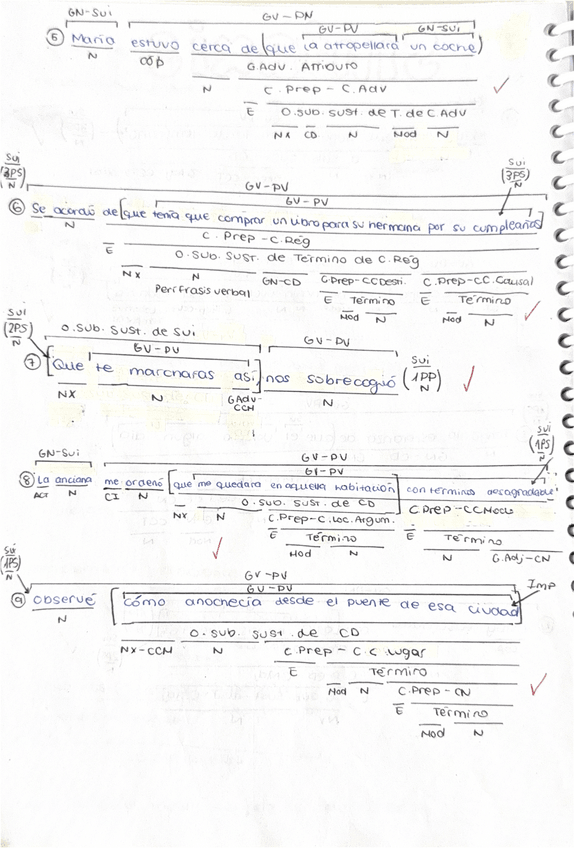 GN-Sui GV-PN
GV-PV GN-Sui
⑤ María estuvo cerca de (que la atropellara un coche)
N cóp
G.Adv. Atributo
N C.Prep-C.Adv
E O.sub. sust. de T. de C Adv
NX CD N Mod N
Sui Sui
(3PS) GV-PV (3PS)
N GV-PV N
⑥ Se acordó de [que tenía que comprar un libro para su hermana por su cumpleaños]
N C.Prep-C.Reg
E O.sub. sust. de Término de C.Reg
NX N GN-CD C.Prep-CCDesti. C.Prep-CC.Causal
Perífrasis verbal E Término E Término
Mod N Mod N
Sui
(2PS) O.sub. sust. de Sui
N GV-PV GV-PV
⑦ [Que te marcharas así] nos sobrecogió (Sui 1PP N)
NX N GAdv-CCM N
Sui
(1PS)
N
GN-Sui GV-PV
GV-PV
⑧ La anciana me ordenó [que me quedara en aquella habitación] con término desagradable
ACT N CI N O.sub. sust. de CD C.Prep-CCModo
NX N C.Prep-C.Loc.Argum. E Término
E Término N G.Adj-CN
Mod N
Sui
(1PS) GV-PV
N GV-PV IMP
⑨ Observé [cómo anochecía desde el puente de esa ciudad]
N O.sub. sust. de CD
NX-CCM N C.Prep-C.C.Lugar
E Término
Mod N C.Prep-CN
E Término
Mod N